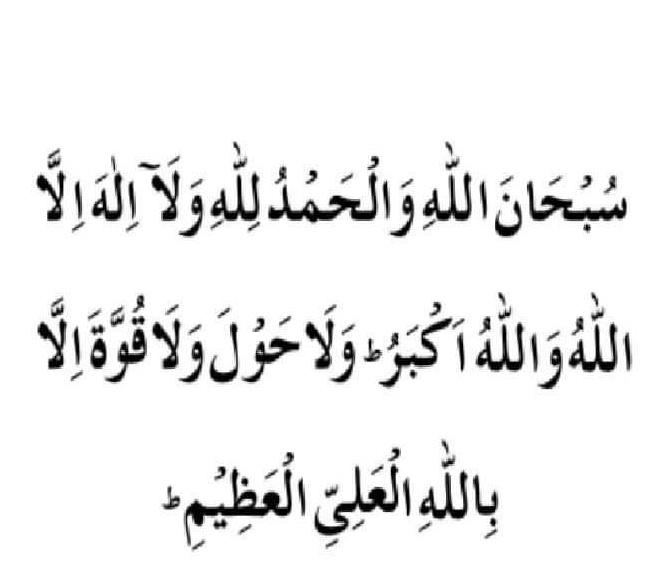 سُبْحَانَ اللّٰهِ وَالْحَمْدُ لِلّٰهِ وَلَآ اِلٰهَ اِلَّا
اللّٰهُ وَاللّٰهُ اَكْبَرُ ؕ وَلَا حَوْلَ وَلَا قُوَّةَ اِلَّا
بِاللّٰهِ الْعَلِيِّ الْعَظِيْمِ ؕ